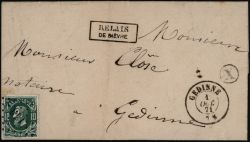 RELAIS
DE BIÈVRE
Monsieur
Monsieur Close
notaire
à Gedinne
GEDINNE
10
X